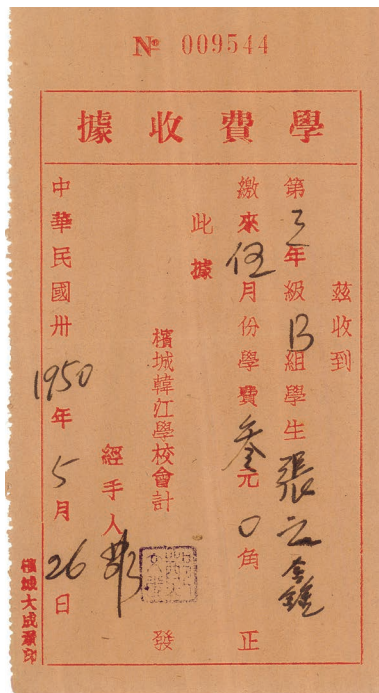 № 009544
學費收據
茲收到
第年級B組學生張
繳來伍月份學費叁元0角正
此據
檳城韓江學校會計 發
經手人
中華民國卅1950年5月26日
檳城大成承印